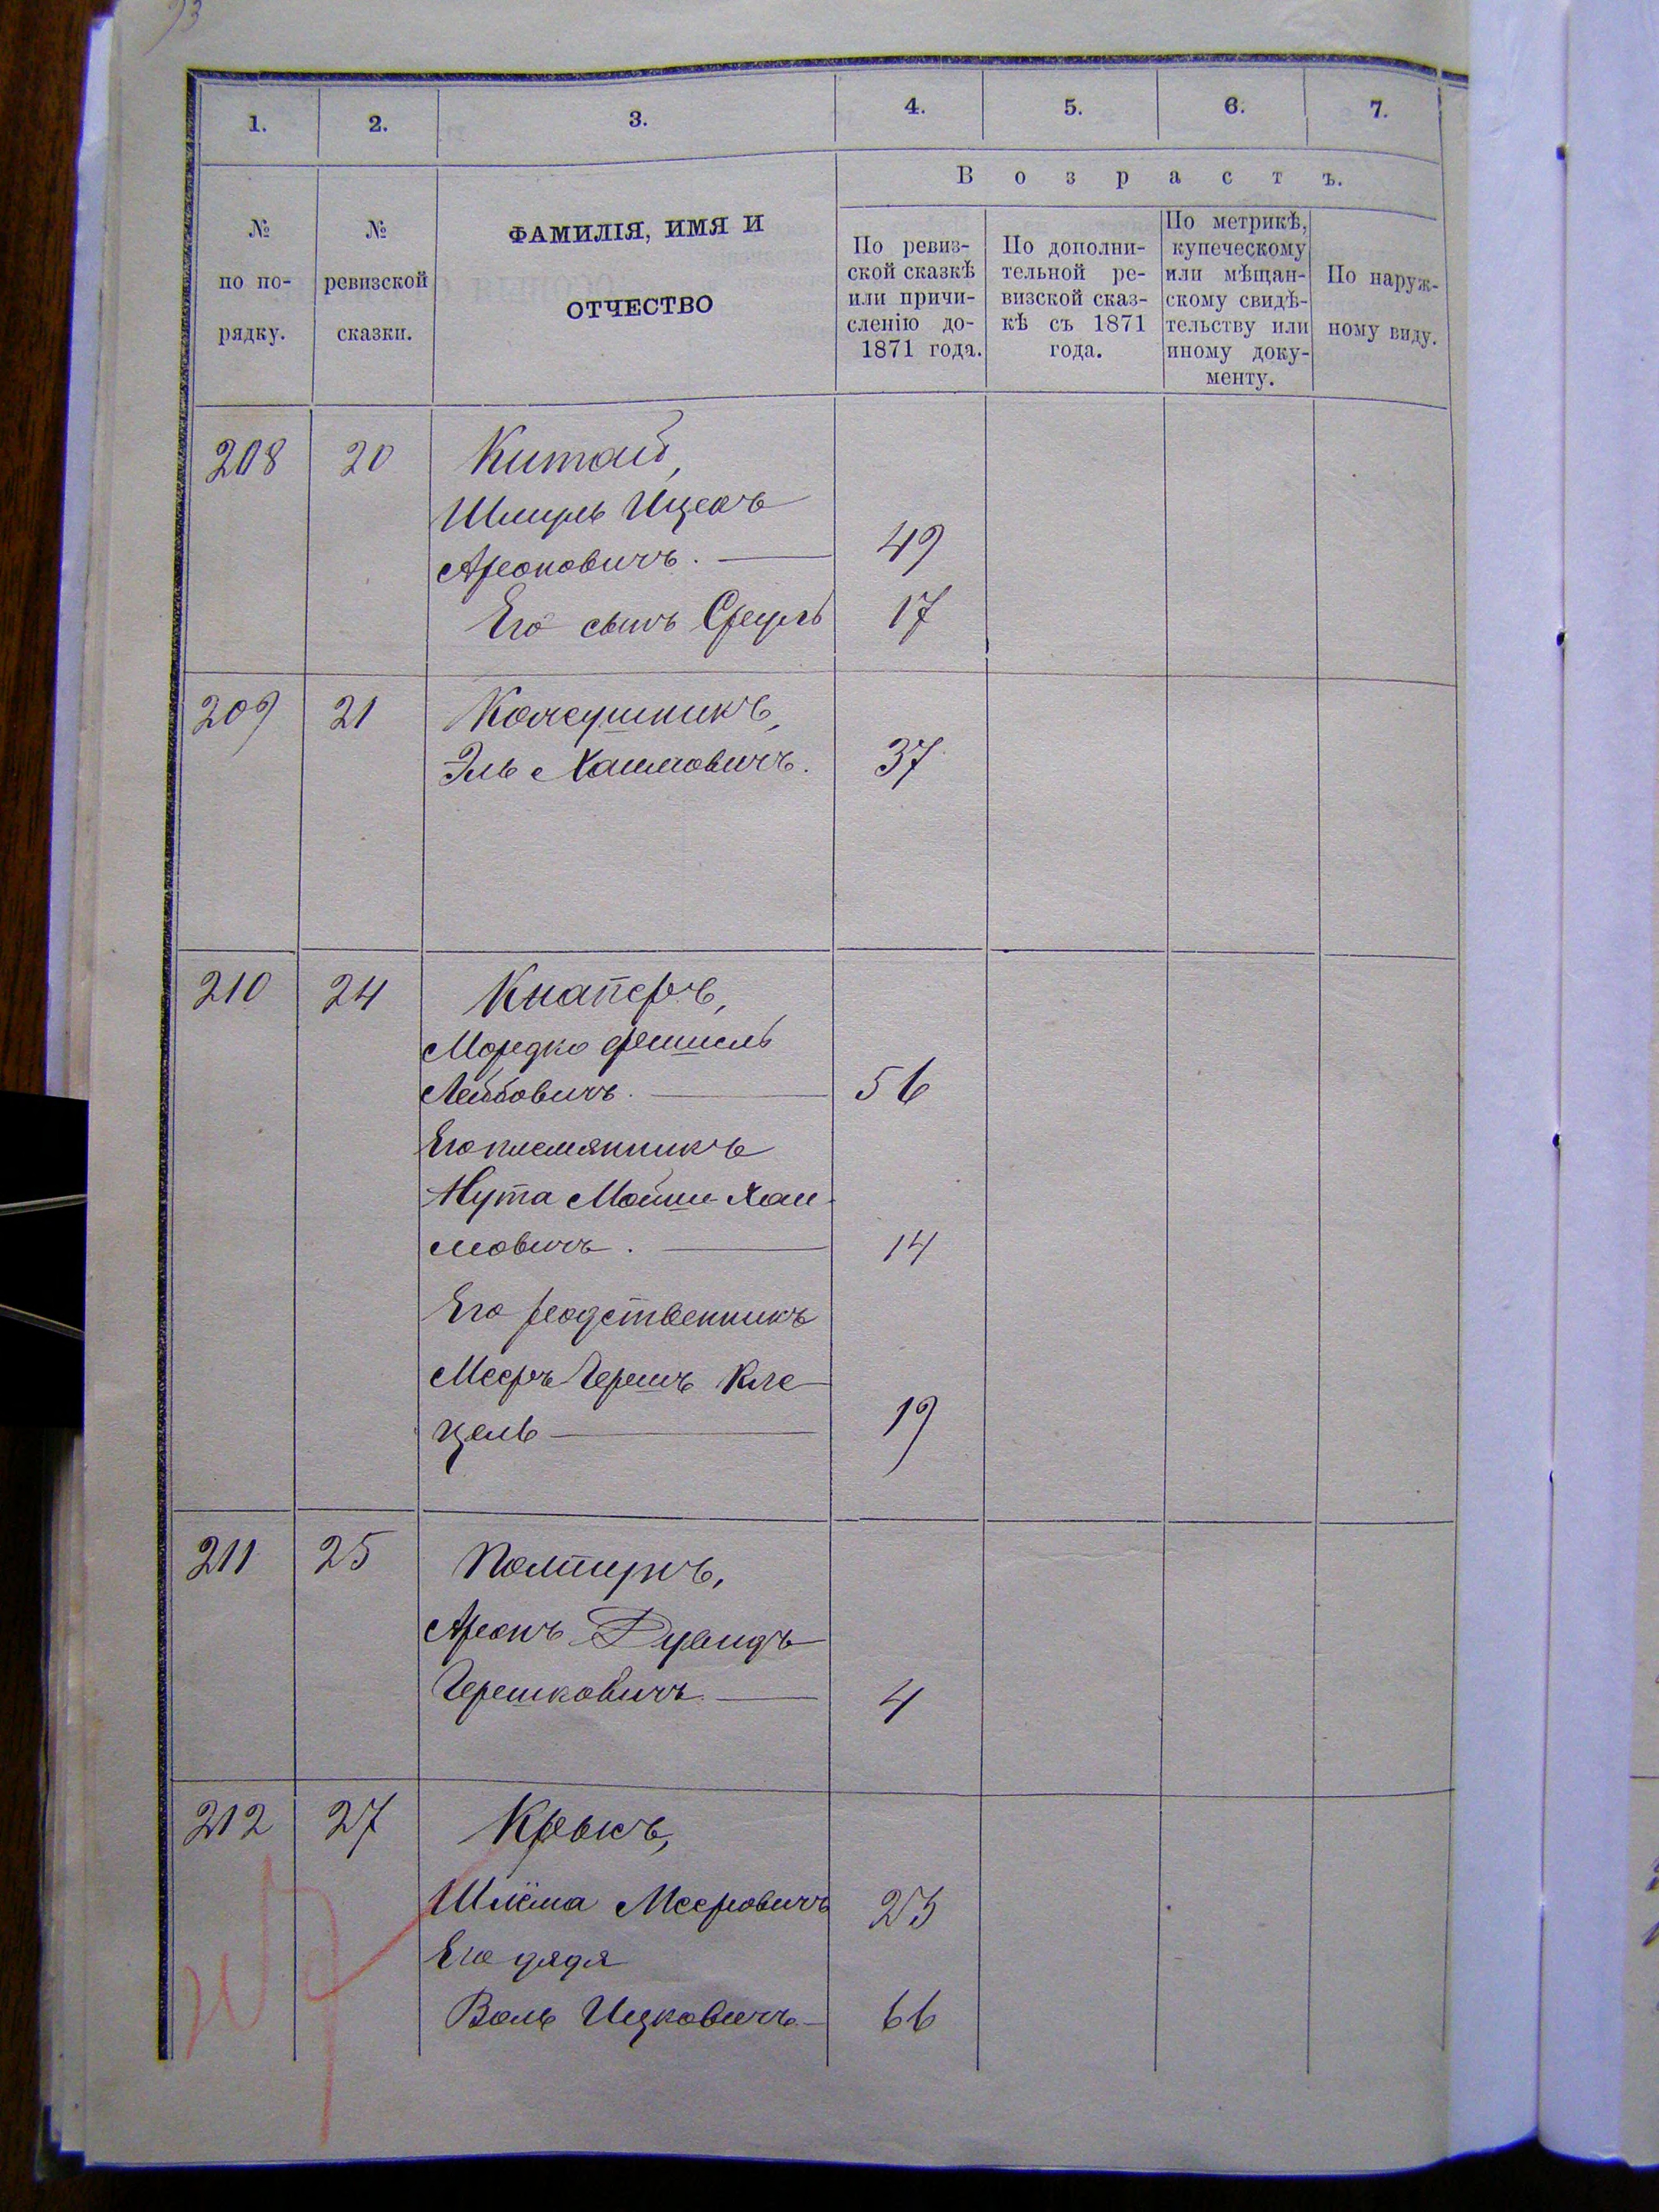 93
1. 2. 3. 4. 5. 6. 7.
В о з р а с т ъ.
№
по по-
рядку.
№
ревизской
сказки.
ФАМИЛІЯ, ИМЯ И
ОТЧЕСТВО
По ревиз-
ской сказкѣ
или причи-
сленію до-
1871 года.
По дополни-
тельной ре-
визской сказ-
кѣ съ 1871
года.
По метрикѣ,
купеческому
или мѣщан-
скому свидѣ-
тельству или
иному доку-
менту.
По наруж-
ному виду.
208 20 Китай,
Шмуль Ицекъ
Ароновичъ. 49
Его сынъ Сруль 17
209 21 Кожушникъ,
Эль Хаимовичъ. 37
210 24 Кнаперъ,
Мордко Фишель
Лейбовичъ. 56
Его племянникъ
Нута Мойше Хаи-
мовичъ. 14
Его родственникъ
Мееръ Гершъ Кле-
цель 19
211 25 Полтиръ,
Аронъ Дувидъ
Гершковичъ. 4
212 27 Крыкъ,
Шлёма Мееровичъ 23
Его дядя
Воль Ицковичъ 66